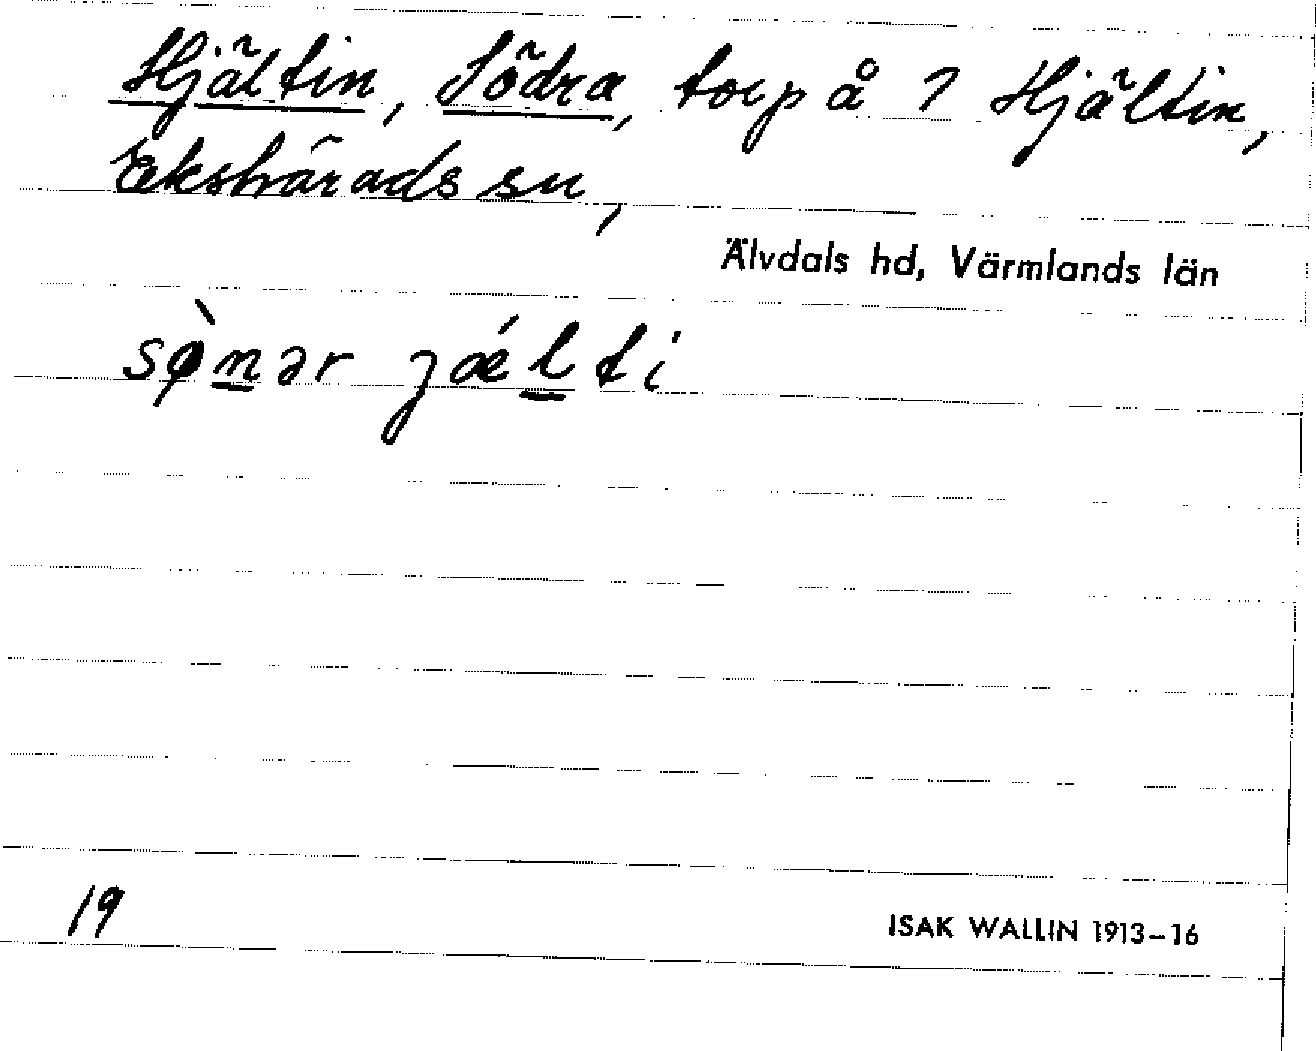 Hjältin, Södra, torp å 1 Hjältin,
Ekshärads sn,
Älvdals hd, Värmlands län
sø̀n̲ər jǽl̲ti
19
ISAK WALLIN 1913–16